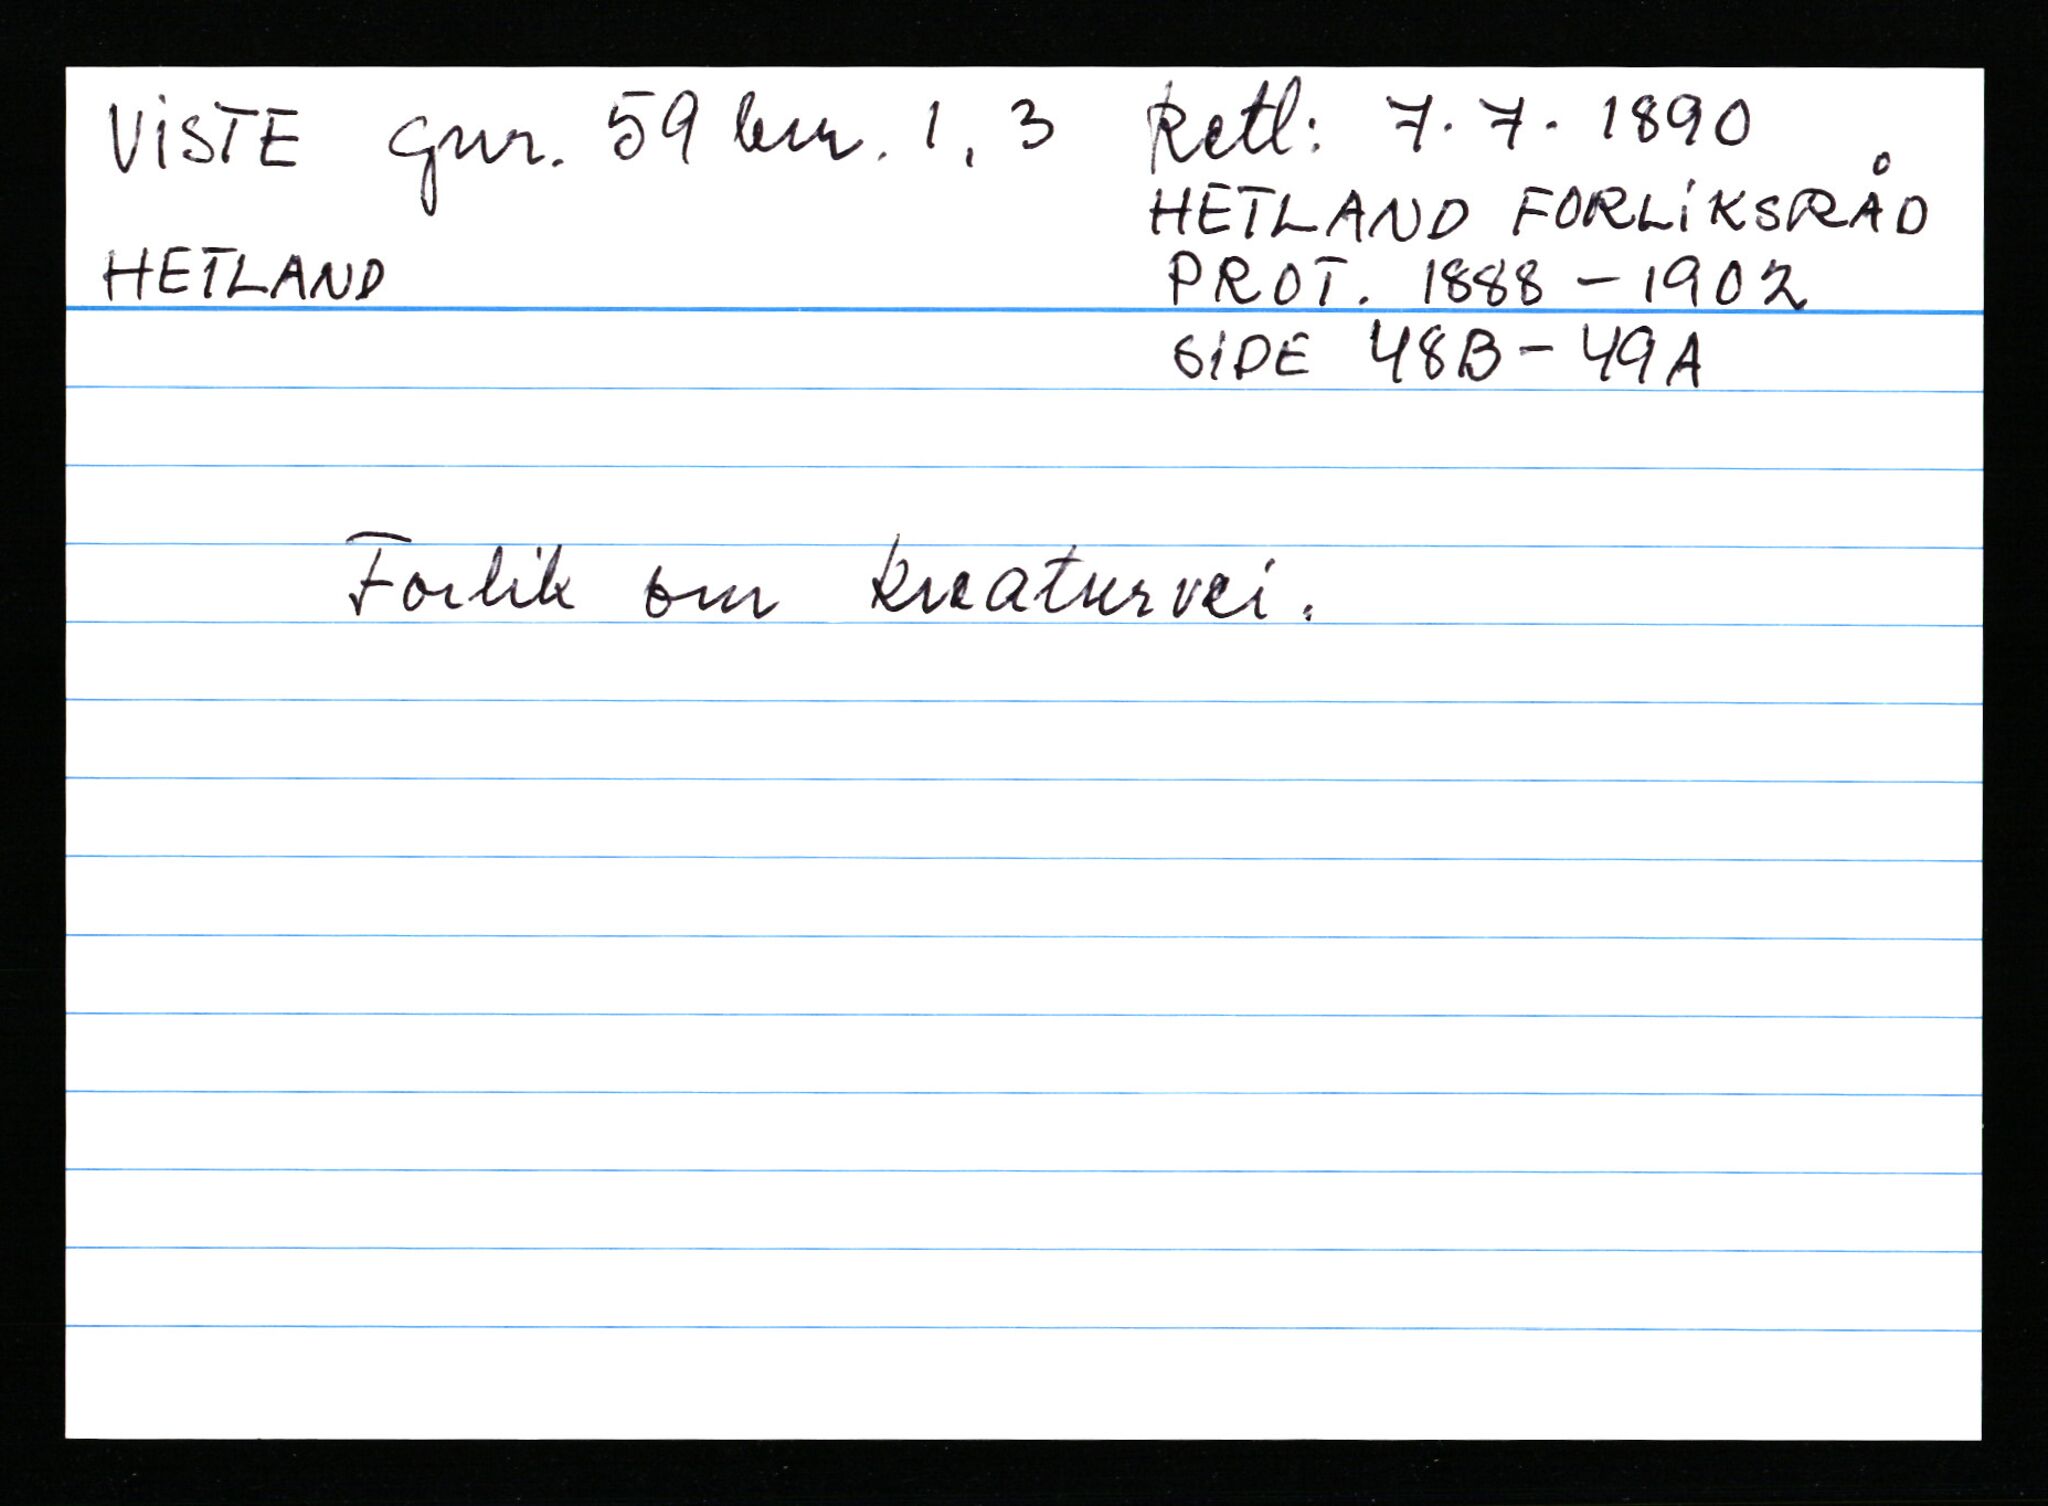 VISTE gnr. 59 bnr. 1, 3 Retl: 7.7.1890
HETLAND FORLIKSRÅD
HETLAND
PROT. 1888-1902
SIDE 48B-49A
Forlik om kreaturvei.